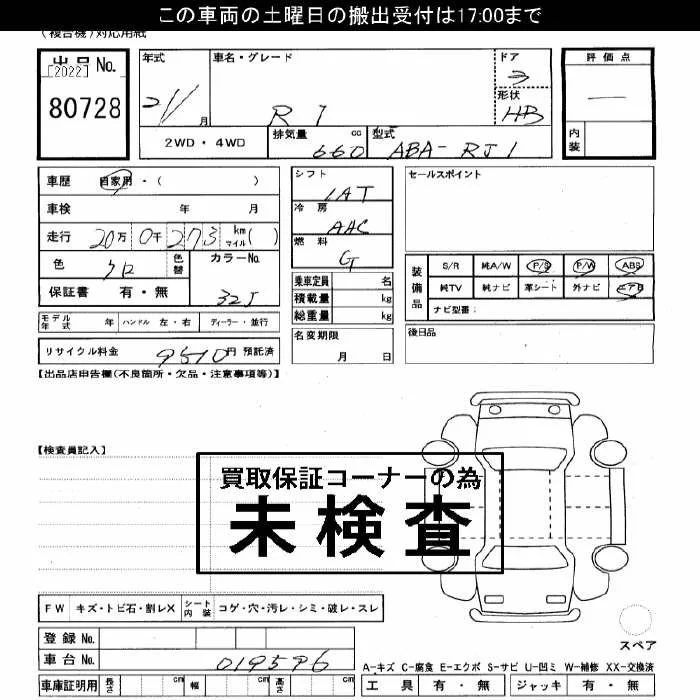 この車両の土曜日の搬出受付は17:00まで
(複合機)対応用紙
出品 No.
[2022]
80728
年式 21/ 月
車名・グレード R1
ドア 3
形状 HB
評価点 —
内装
2WD・4WD
排気量 660 cc
型式 ABA-RJ1
車歴 自家用・( )
車検 年 月
走行 20万 0千 273 km マイル ( )
色 クロ 色替 カラーNo. 32J
保証書 有・無
モデル年式 年 ハンドル 左・右 ディーラー・並行
リサイクル料金 9510円 預託済
シフト IAT
冷房 AAC
燃料 G
乗車定員 名
積載量 kg
総重量 kg
名変期限 月 日
セールスポイント
装備品
S/R 純A/W P/S P/W ABS
純TV 純ナビ 革シート 外ナビ エアB
ナビ型番:
後日品
【出品店申告欄(不良箇所・欠品・注意事項等)】
【検査員記入】
買取保証コーナーの為
未検査
FW キズ・トビ石・割レX シート内装 コゲ・穴・汚レ・シミ・破レ・スレ
登録 No.
車台 No. 019596
車庫証明用 長さ cm 幅 cm 高さ cm
スペア
A-キズ C-腐食 E-エクボ S-サビ U-凹ミ W-補修 XX-交換済
工具 有・無 ジャッキ 有・無